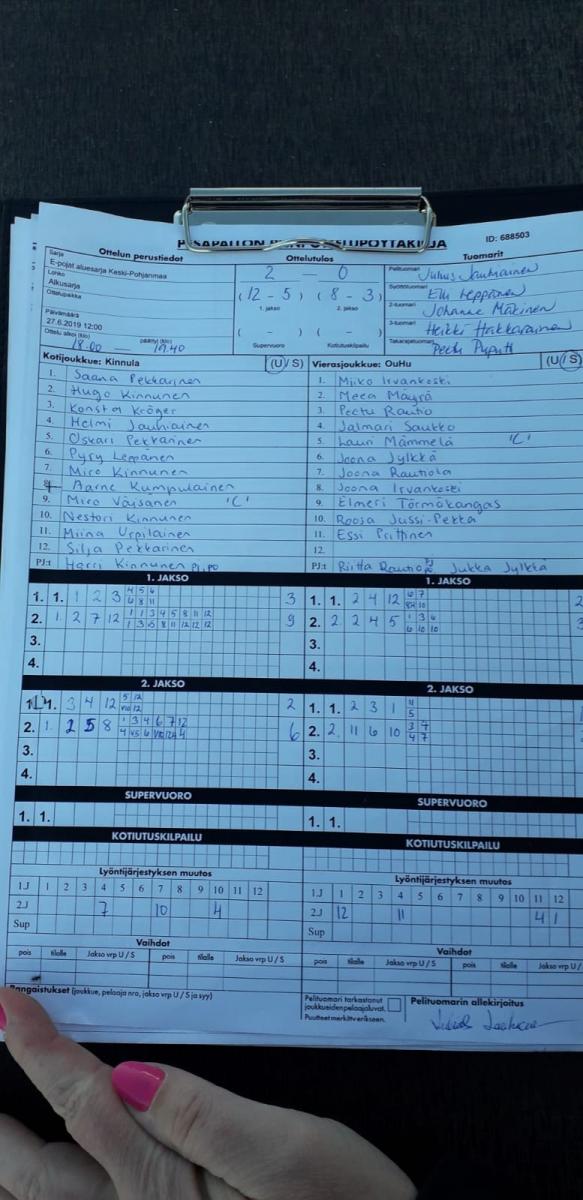 ID: 688503
Ottelun perustiedot Ottelutulos Tuomarit
Sarja
E-pojat aluesarja Keski-Pohjanmaa
Lohko
Alkusarja
Ottelupaikka
Päivämäärä
27.6.2019 12:00
Ottelu alkoi (klo) päättyi (klo)
18.00 19.40
2 - 0
(12 - 5) (8 - 3)
1. jakso 2. jakso
( - ) ( - )
Supervuoro Kotiutuskilpailu
Pelituomari
Syöttötuomari Elli Leppänen
2-tuomari Johanna Mäkinen
3-tuomari Heikki Hakkarainen
Takarajatuomari Pertti
Kotijoukkue: Kinnula (U / S) Vierasjoukkue: OuHu (U / S)
1. Saana Pekkarinen 1. Miiko Irvankoski
2. Hugo Kinnunen 2. Meea Mäyrä
3. Konsta Kröger 3. Peetu Rautio
4. Helmi Jauhiainen 4. Jalmari Saukko
5. Oskari Pekkarinen 5. Lauri Mämmelä "C"
6. Pyry Leppänen 6. Joona Jylkkä
7. Miro Kinnunen 7. Joona Rautiola
8. Aarne Kumpulainen 8. Joona Irvankoski
9. Miro Väisänen "C" 9. Elmeri Törmäkangas
10. Nestori Kinnunen 10. Roosa Jussi-Pekka
11. Miina Urpilainen 11. Essi Prittinen
12. Silja Pekkarinen 12.
PJ:t Harri Kinnunen PJ, PO PJ:t Riitta Rautio Jukka Jylkkä
1. JAKSO 1. JAKSO
1. 1. 1 2 3 4 5 6 6 8 11 3 1. 1. 2 4 12 6 7
2. 1 2 7 12 1 1 3 4 5 8 11 12 9 2. 2 2 4 5 1 3 6 6 10 10
3. 3.
4. 4.
2. JAKSO 2. JAKSO
1. 3 4 12 5 12 2 1. 1. 2 3 1 11 5
2. 1. 2 5 8 1 3 4 6 7 12 6 2. 2. 11 6 10 3 7 4 7
3. 3.
4. 4.
SUPERVUORO SUPERVUORO
1. 1. 1. 1.
KOTIUTUSKILPAILU KOTIUTUSKILPAILU
Lyöntijärjestyksen muutos Lyöntijärjestyksen muutos
1.J 1 2 3 4 5 6 7 8 9 10 11 12 1.J 1 2 3 4 5 6 7 8 9 10 11 12
2.J 7 10 4 2.J 12 11 4 1
Sup Sup
Vaihdot Vaihdot
pois tilalle Jakso vrp U / S pois tilalle Jakso vrp U / S pois tilalle Jakso vrp U / S pois tilalle Jakso vrp U /
Rangaistukset (joukkue, pelaaja nro, jakso vrp U / S ja syy)
Pelituomari tarkastanut
joukkueiden pelaajaluvat.
Puutteet merkittäverikseen.
Pelituomarin allekirjoitus